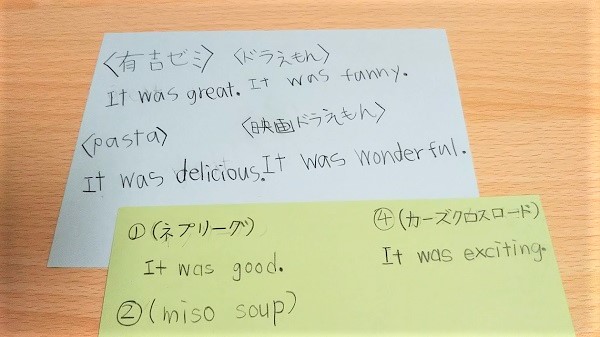 〈有吉ゼミ〉 〈ドラえもん〉
It was great. It was fanny.
〈pasta〉 〈映画ドラえもん〉
It was delicious. It was wonderful.
①(ネプリーグ) ④(カーズクロスロード)
It was good. It was exciting.
②(miso soup)